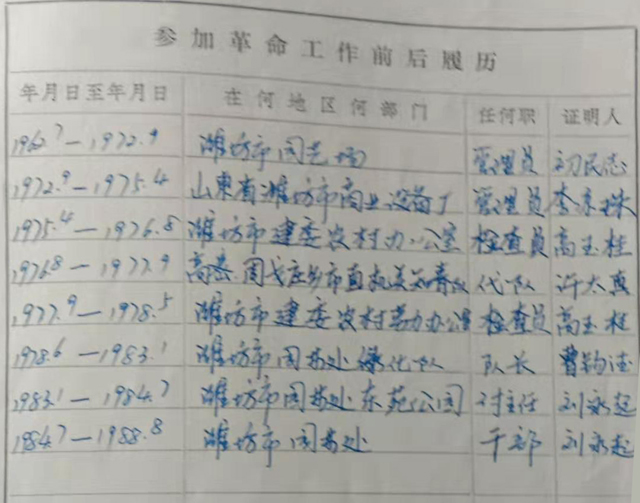 参加革命工作前后履历
年月日至年月日 在何地区何部门 任何职 证明人
1962.7—1972.9 潍坊市园艺场 管理员 初民志
1972.9—1975.4 山东省潍坊市商业设备厂 管理员
1975.4—1976.8 潍坊市建委农村办公室 检查员 高玉桂
1976.8—1977.9 高密周戈庄乡市直机关知青队 代队 许太真
1977.9—1978.5 潍坊市建委农村劳力办公室 检查员 高玉桂
1978.6—1983.1 潍坊市园林处绿化队 队长 曹钧
1983.1—1984.7 潍坊市园林处东苑公园 付主任 刘永起
1984.7—1988.8 潍坊市园林处 干部 刘永起